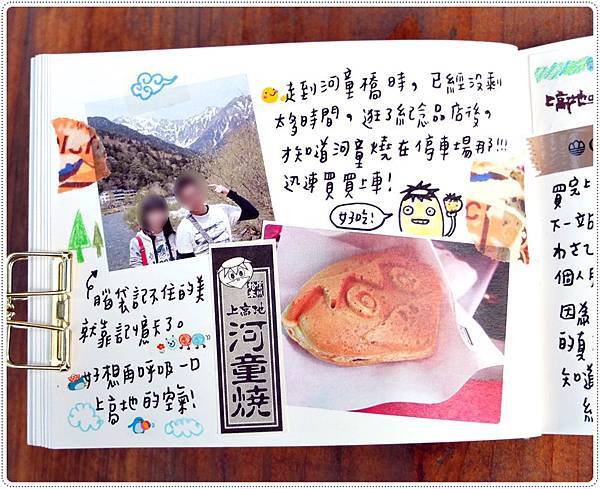 走到河童橋時，已經沒剩
太多時間，逛了紀念品店後，
才知道河童燒在停車場那!!!
迅速買買上車!
好吃!
腦袋記不住的美
就靠記憶卡了。
好想再呼吸一口
上高地的空氣!
上高地
河童燒
上高地
買完上
下一站
わさ
個人
因為
的夏
知道